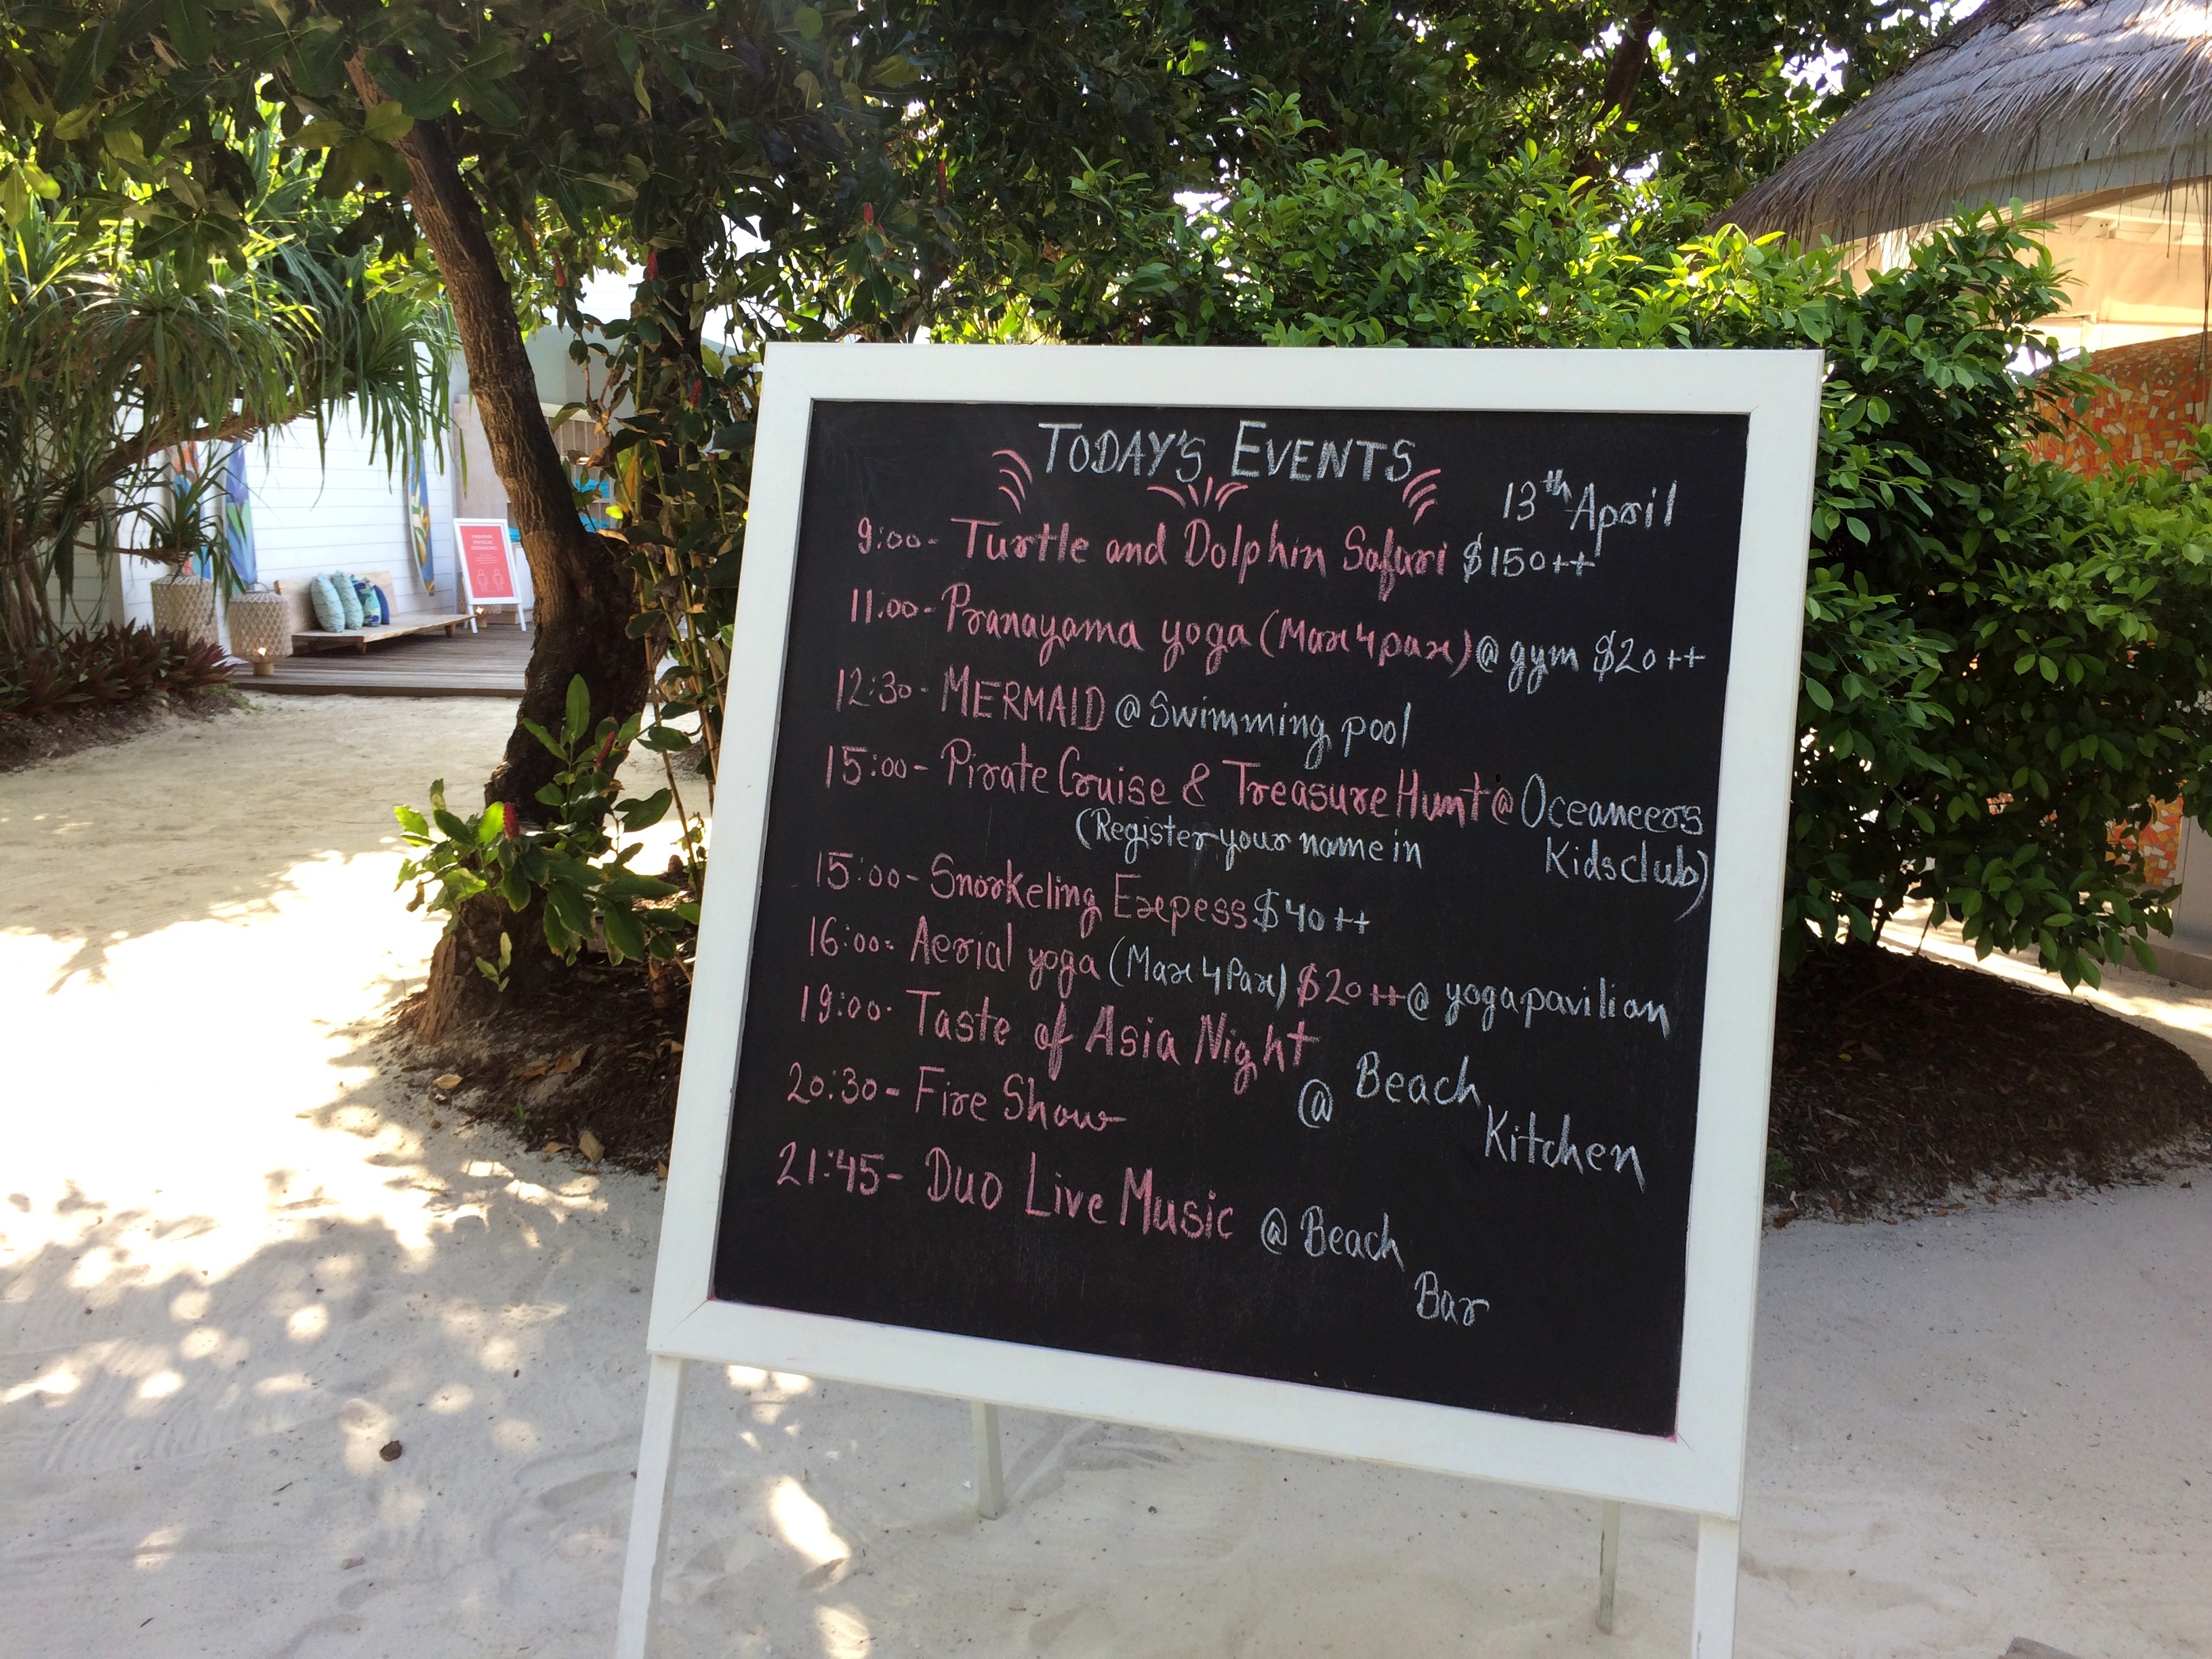 TODAY'S EVENTS
13th April
9:00- Turtle and Dolphin Safari $150++
11:00- Pranayama yoga (Max 4pax) @ gym $20++
12:30- MERMAID @ Swimming pool
15:00- Pirate Cruise & Treasure Hunt @ Oceaneers
(Register your name in Kidsclub)
15:00- Snorkeling Expess $40++
16:00- Aerial yoga (Max 4Pax) $20++ @ yoga pavilian
19:00- Taste of Asia Night
@ Beach Kitchen
20:30- Fire Show
21:45- Duo Live Music @ Beach
Bar
MAINTAIN
PHYSICAL
DISTANCING